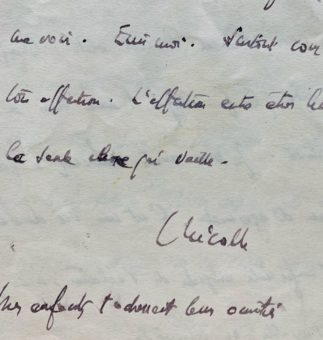 me voir. Ecris moi. Surtout
ton affection. L'affection entre êtres
la seule chose qui vaille.
Nicole
enfants t'adressent leurs amitiés